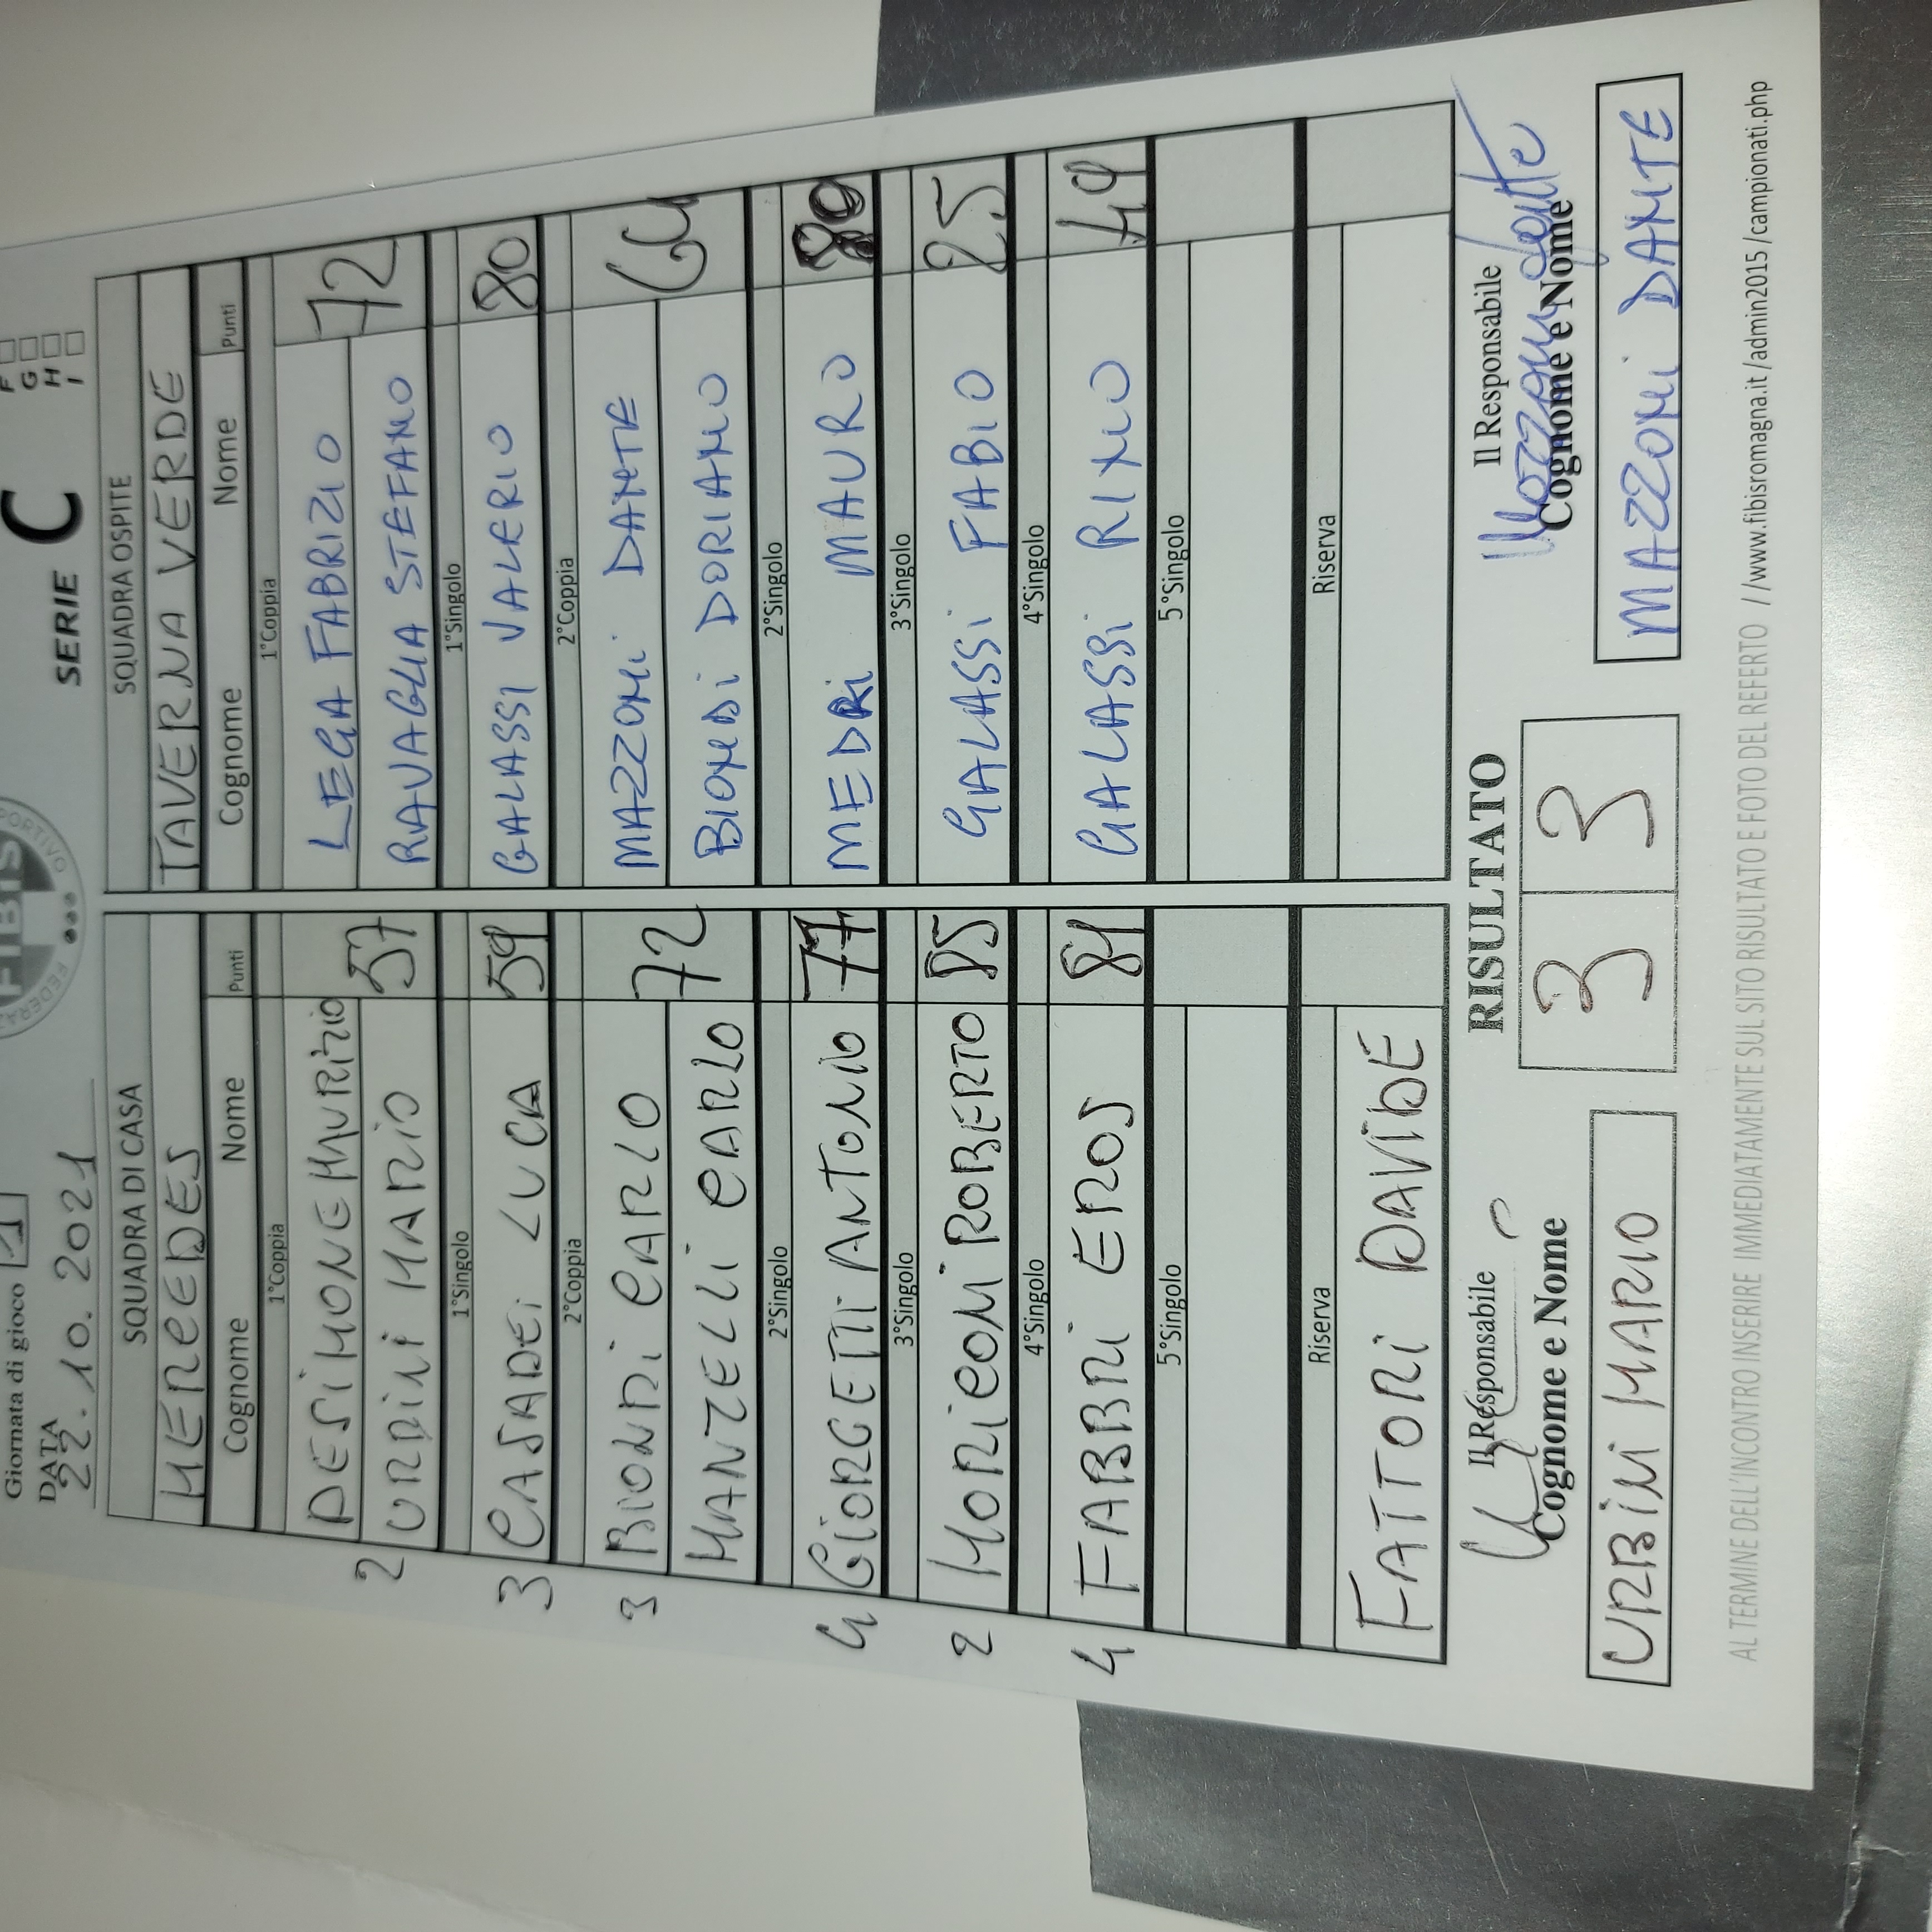 Giornata di gioco 1
DATA
22.10.2021
SERIE C
F
G
H
I
SQUADRA DI CASA
SQUADRA OSPITE
MERCEDES
TAVERNA VERDE
Cognome Nome Punti
Cognome Nome Punti
1°Coppia
1°Coppia
DESIMONE MAURIZIO
LEGA FABRIZIO
57
72
2 URBINI MARIO
RAVAGLIA STEFANO
1°Singolo
1°Singolo
3 CASADEI LUCA 59
GALASSI VALERIO 80
2°Coppia
2°Coppia
3 BIONDI CARLO
MAZZONI DANTE
72
64
MANZELLI CARLO
BIONDI DORIANO
2°Singolo
2°Singolo
4 GIORGETTI ANTONIO 77
MEDRI MAURO 80
3°Singolo
3°Singolo
2 MORICONI ROBERTO 85
GALASSI FABIO 25
4°Singolo
4°Singolo
4 FABBRI EROS 81
GALASSI RINO 49
5°Singolo
5°Singolo
Riserva
Riserva
FATTORI DAVIDE
Il Responsabile
RISULTATO
Il Responsabile
Mazzoni Dante
Cognome e Nome
3 3
Cognome e Nome
URBINI MARIO
3 3
MAZZONI DANTE
AL TERMINE DELL'INCONTRO INSERIRE IMMEDIATAMENTE SUL SITO RISULTATO E FOTO DEL REFERTO //www.fibisromagna.it/admin2015/campionati.php